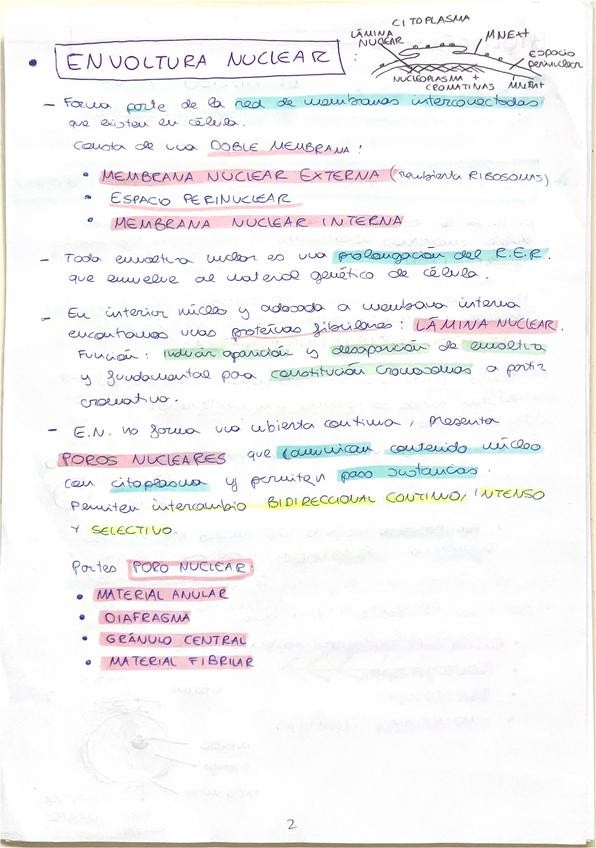 CITOPLASMA
LÁMINA
NUCLEAR
MNExt
espacio
perinuclear
NUCLEOPLASMA +
CROMATINAS
MNInt
• ENVOLTURA NUCLEAR :
- Forma parte de la red de membranas interconectadas
que existen en célula.
Consta de una DOBLE MEMBRANA:
• MEMBRANA NUCLEAR EXTERNA ( RIBOSOMAS)
• ESPACIO PERINUCLEAR
• MEMBRANA NUCLEAR INTERNA
- Toda envoltura nuclear es una prolongación del R.E.R.
que envuelve al material genético de célula.
- En interior núcleo y adosada a membrana interna
encontramos unas proteínas fibrilares: LÁMINA NUCLEAR.
Función: inducir aparición y desaparición de envoltura
y fundamental para constitución cromosomas a partir
cromatina.
- E.N. no forma una cubierta continua, presenta
POROS NUCLEARES que comunican contenido núcleo
con citoplasma y permiten paso sustancias.
Permiten intercambio BIDIRECCIONAL CONTINUO, INTENSO
Y SELECTIVO.
Partes PORO NUCLEAR:
• MATERIAL ANULAR
• DIAFRAGMA
• GRÁNULO CENTRAL
• MATERIAL FIBRILAR
2